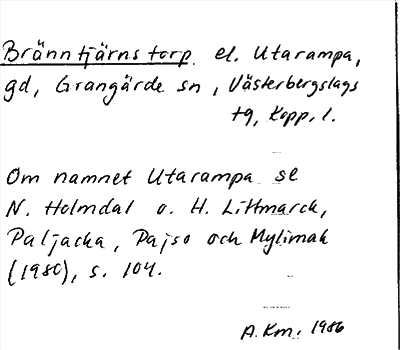 Bränntjärnstorp el. Utarampa,
gd, Grangärde sn, Västerbergslags
tg, Kopp. l.
Om namnet Utarampa se
N. Holmdal o. H. Littmarck,
Paljacka, Pajso och Mylimak
(1980), s. 104.
A. Km. 1986